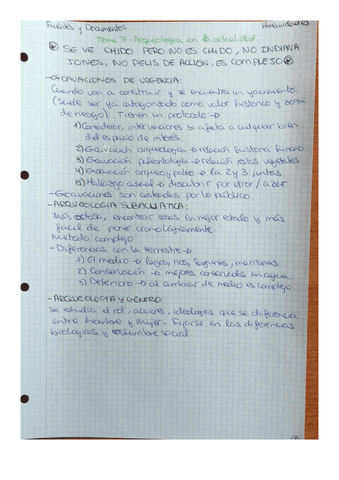 Fuentes y Documentos
Tema 7: Arqueología en la actualidad
SE VE CHIDO PERO NO ES CHIDO, NO INDIANA
JONES, NO PELIS DE ACCIÓN, ES COMPLEJO
-EXCAVACIONES DE URGENCIA:
Cuando van a construir y se encuentra un yacimiento.
(Suele ser ya categorizado como valor histórico y zona
de riesgo) Tienen un protocolo →
1) Considerar, intervenciones si afecta a cualquier bien
del espacio de interés.
2) Excavación arqueología → relación historia humano
3) Excavación paleontología → relación restos vegetales
4) Excavación arqueo y paleo → la 2 y 3 juntas.
5) Hallazgo casual → descubrir por error / azar
-Excavaciones son costeadas por lo público
-ARQUEOLOGÍA SUBACUÁTICA:
Más costosa, encontrar cosas en mejor estado y más
fácil de poner cronológicamente.
Metodo complejo
-Diferencias con la terrestre →
1) El medio → lagos, ríos, lagunas, marismas
2) Conservación → mejores conservados en agua.
3) Deterioro → al cambiar de medio es complejo
-ARQUEOLOGÍA Y GÉNERO:
se estudia el rol, acciones, ideologías que se diferencia
entre hombre y mujer. Fijarse en las diferencias
biológicas y costumbre social.